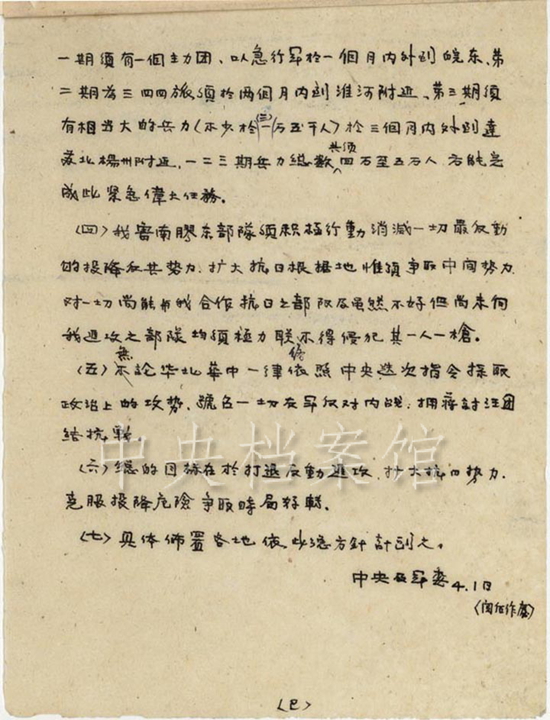 一期须有一个主力团、以急行军於一个月内外到皖东、第
二期为三四四旅须於两个月内到淮河附近、第三期须
有相当大的兵力(不少於(三)一万五千人)於三个月内外到达
苏北楊州附近、一二三期兵力总数共须四万至五万人、方能完
成此紧急偉大任務。
(四)我魯南膠东部隊须积極行動消滅一切最反動
的投降和共势力、扩大抗日根据地、惟须争取中间势力、
对一切尚能与我合作抗日之部队及虽然不好但尚未向
我進攻之部隊均须極力联不得侵犯其一人一槍。
(五)無論华北華中一律依照中央迭次指令採取
政治上的攻势、號召一切友军反对内战、拥蒋討汪团
结抗戰
(六)总的目标在於打退反動進攻、扩大抗日势力、
克服投降危險争取時局好轉。
(七)具体佈置各地依此总方针計划之。
中央及军委4.1日
中央档案馆